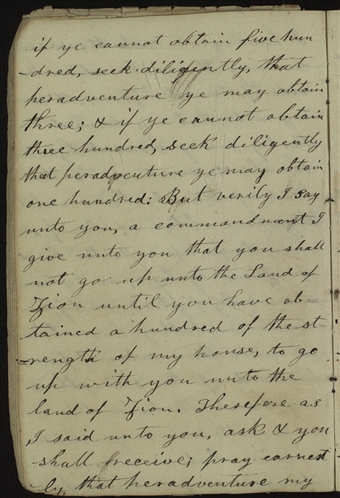 if ye cannot obtain five hun
-dred, seek diligently, that
peradventure ye may obtain
three; & if ye cannot obtain
three hundred, seek diligently
that peradventure ye may obtain
one hundred: But verily I say
unto you, a commandment I
give unto you that you shall
not go up unto the Land of
Zion until you have ob-
tained a hundred of the st-
rength of my house, to go
up with you unto the
land of Zion. Therefore as
I said unto you, ask & you
shall receive; pray earnest
ly, that peradventure my